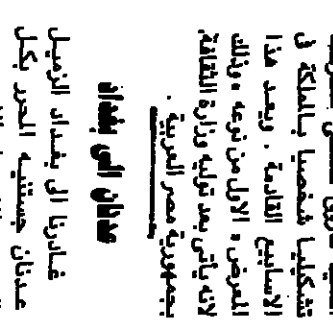 تشكيليا شخصيا بالمملكة فى
الاسابيع القادمة . ويعد هذا
المعرض ، الاول من نوعه ، وذلك
لانه يأتى بعد توليه وزارة الثقافة
بجمهورية مصر العربية .
عدنان الى بغداد
غادرنا الى بغداد الزميل
عدنان جستنيه المحرر بكل